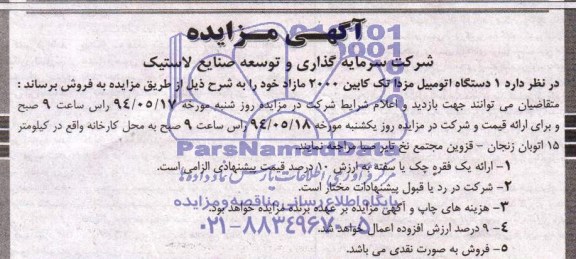 آگهی مزایده
شرکت سرمایه گذاری و توسعه صنایع لاستیک
در نظر دارد ۱ دستگاه اتومبیل مزدا تک کابین ۲۰۰۰ مازاد خود را به شرح ذیل از طریق مزایده به فروش برساند :
متقاضیان می توانند جهت بازدید و اعلام شرایط شرکت در مزایده روز شنبه مورخه ۹۴/۰۵/۱۷ راس ساعت ۹ صبح
و برای ارائه قیمت و شرکت در مزایده روز یکشنبه مورخه ۹۴/۰۵/۱۸ راس ساعت ۹ صبح به محل کارخانه واقع در کیلومتر
۱۵ اتوبان زنجان - قزوین مجتمع نخ تایر صبا مراجعه نمایند.
۱- ارائه یک فقره چک یا سفته به ارزش ۱۰ درصد قیمت پیشنهادی الزامی است.
۲- شرکت در رد یا قبول پیشنهادات مختار است.
۳- هزینه های چاپ و آگهی مزایده بر عهده برنده مزایده خواهد بود.
۴- ۹ درصد ارزش افزوده اعمال خواهد شد.
۵- فروش به صورت نقدی می باشد.
ParsNamadData
پایگاه اطلاع رسانی مناقصه و مزایده
۰۲۱-۸۸۳۴۹۶۷۰-۵